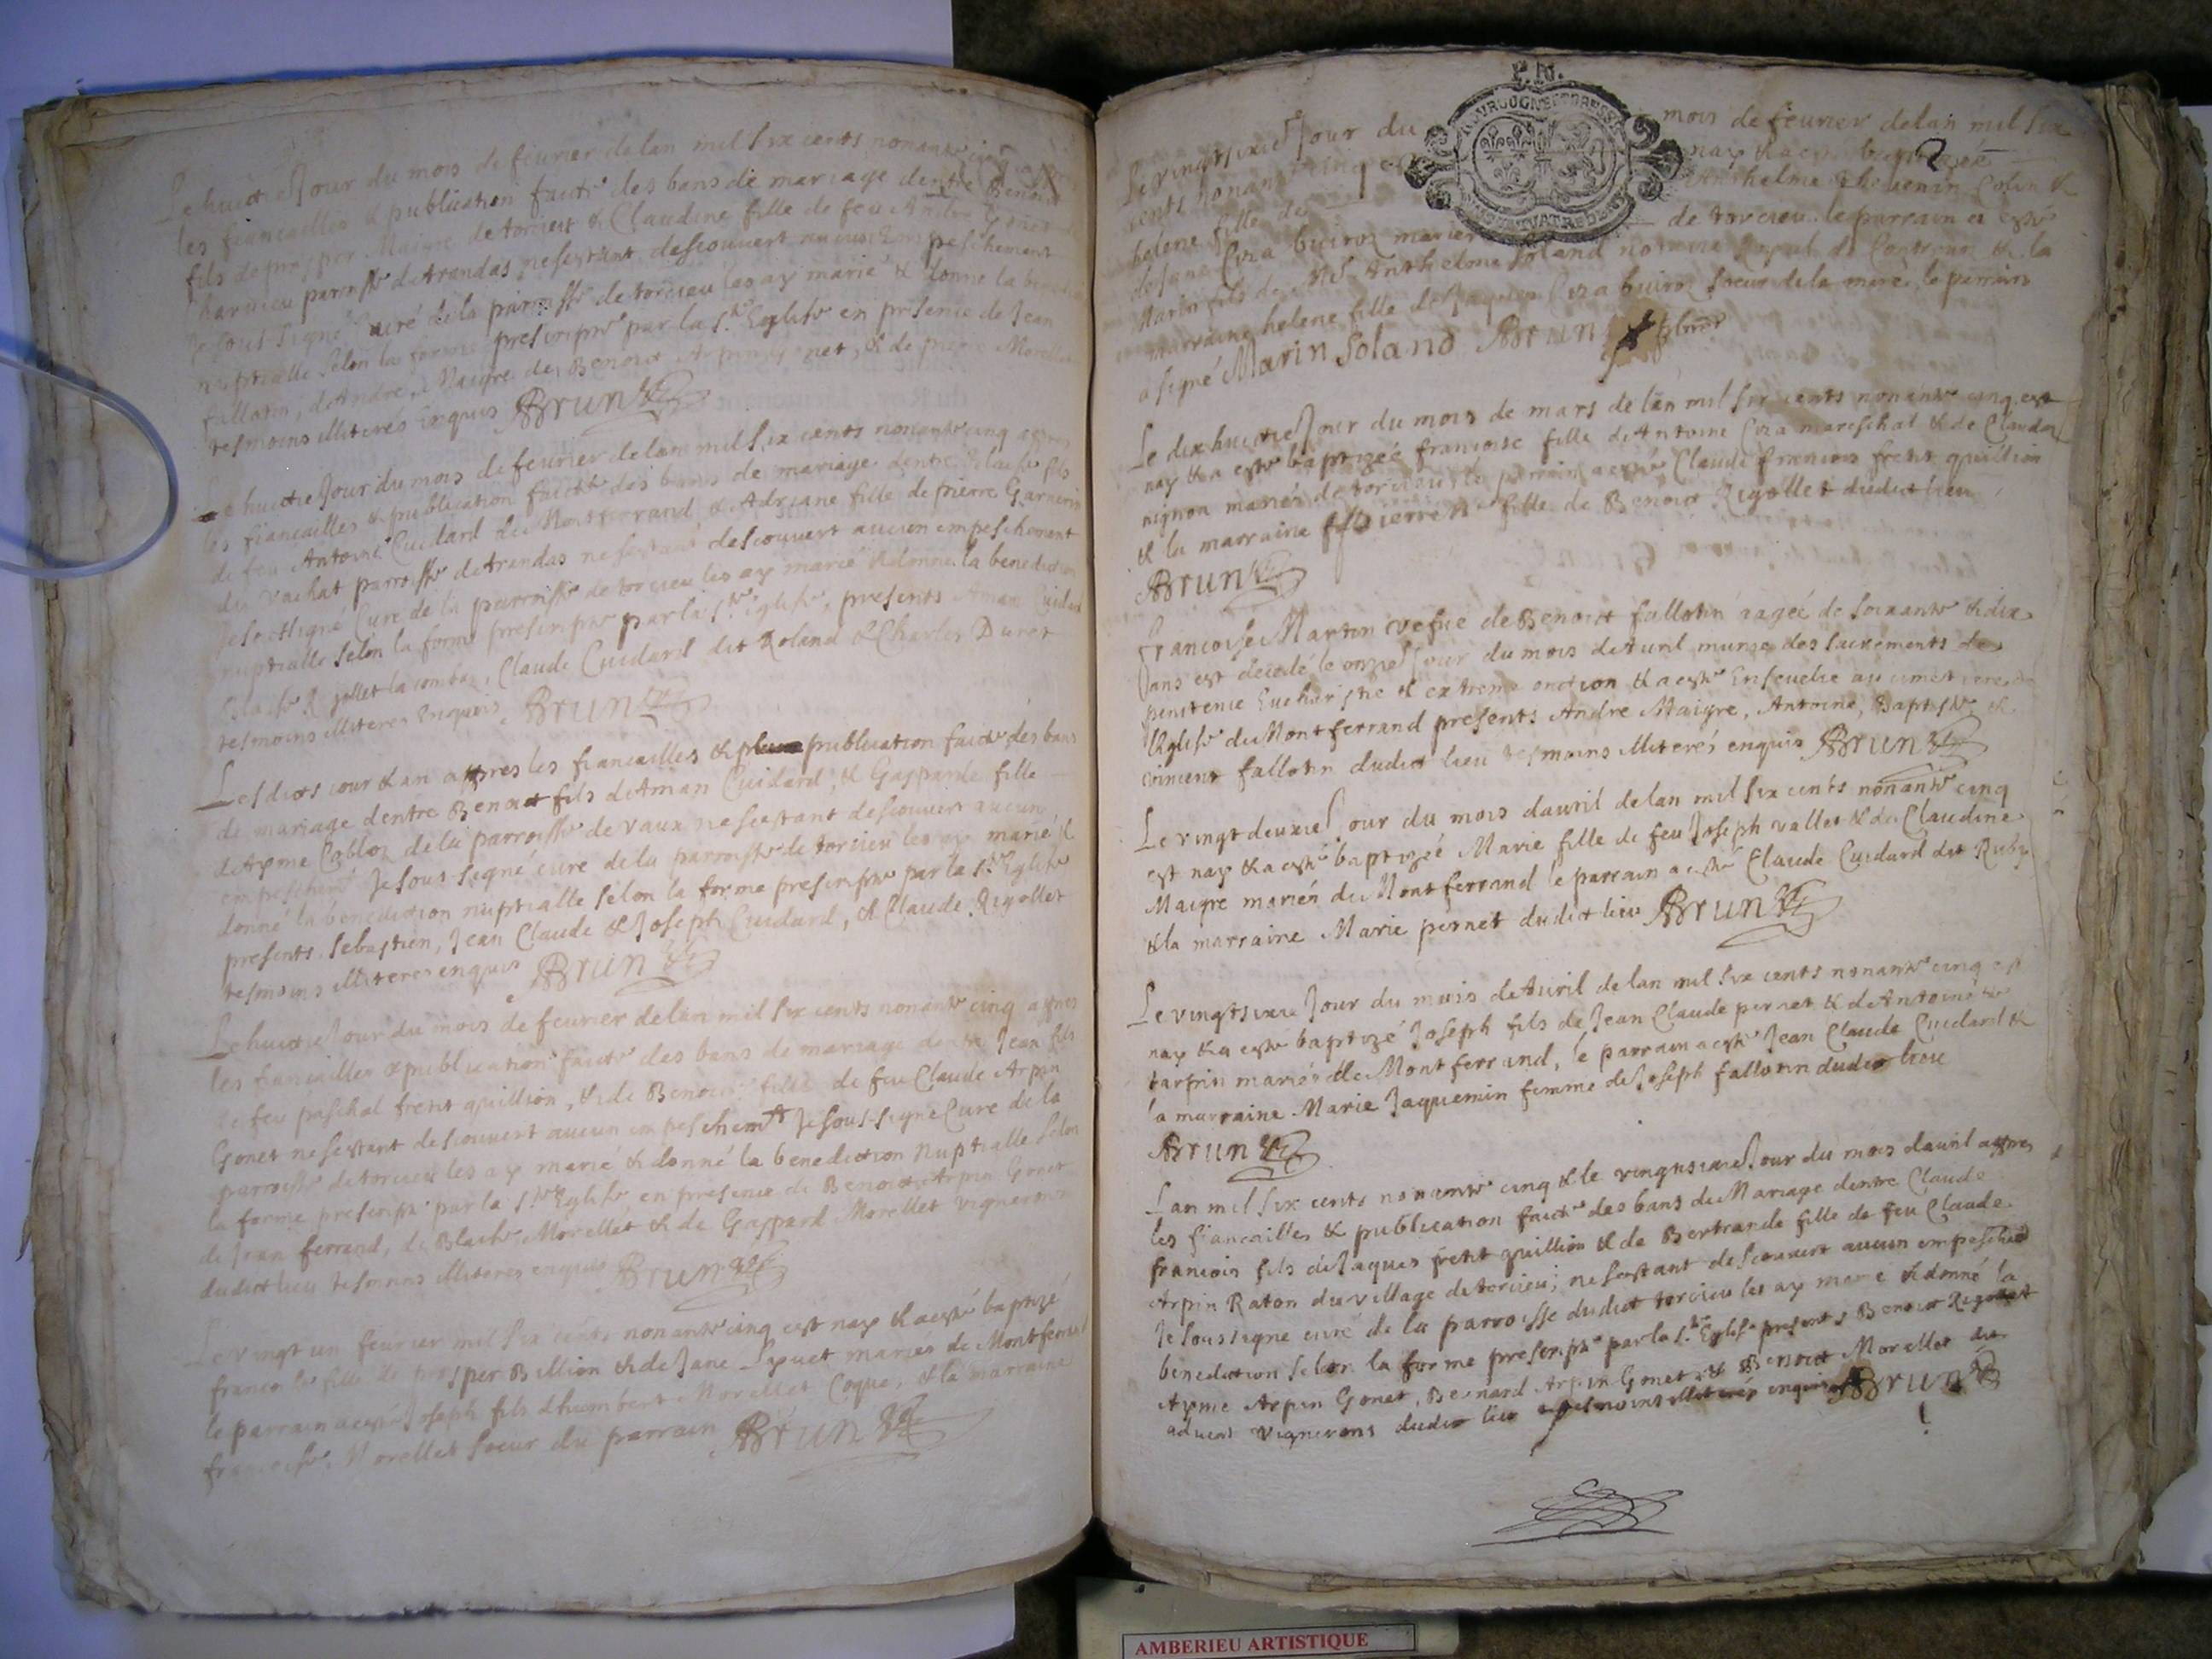 Le huict Jour du mois de feuvrier de lan mil six cents nonante
les fiancailles & publication faicte des bans de mariage dentre Benoict
fils de prosper Maigre de torcieu & Claudine fille de feu
parroisse de trandas ne sestant descouvert aucun empeschement
Je sous signé curé de la parroisse de torcieu les ay marié & donne la
nuptialle selon la forme prescripte par la Ste Eglise en presence de Jean
fallotin, de Andre Maigre de Benoict Arpin gonet, & de pierre Morellet
tesmoins illiterés enquis Brun
Le huictie Jour du mois de feuvrier de lan mil six cents nonante cinq apres
les fiancailles & publication faicte des bans de mariage dentre Blaise fils
de feu Antoine Cuidard de Montferrand & Adriane fille de pierre Garnerin
du vachat parroisse de trandas ne sestant descouvert aucun empeschement
Je soubsigné Curé de la parroisse de torcieu les ay marié & donne la benediction
nuptialle selon la forme prescripte par la Ste Eglise, presents Aman Cuidard
Claude Cuidard dit Roland & Charles Duret
tesmoins illiteres enquis Brun
Lesdicts jour & an appres les fiancailles & publication faicte des bans
de mariage dentre Benoict fils de Aman Cuidard, & Gasparde fille
de Ayme Cobloz de la parroisse de vaux ne sestant descouvert aucun
empeschemt Je sous signé curé de la parroisse de torcieu les ay marié &
donné la benediction nuptialle selon la forme prescripte par la Ste Eglise
presents Sebastien, Jean Claude & Joseph Cuidard, & Claude Rigollet
tesmoins illiteres enquis Brun
Le huictie Jour du mois de feuvrier de lan mil six cents nonante cinq apres
les fiancailles & publication faicte des bans de mariage dentre Jean fils
de feu paschal fretit quillion, & de Benoicte fille de feu Claude Arpin
Gonet ne sestant descouvert aucun empeschemt Je sous signé Curé de la
parroisse de torcieu les ay marié & donné la benediction nuptialle selon
la forme prescripte par la Ste Eglise en presence de Benoict Arpin Gonet
de Jean ferrand, de Blaise Morellet & de Gaspard Morellet vignerons
dudict lieu tesmoins illiteres enquis Brun
Le vingt un feuvrier mil six cents nonante cinq est nay & a esté baptizé
francoise fille de prosper Billion & de Jane mariés de Montferrand
le parrain a esté Joseph fils dhumbert Morellet Coque, & la marraine
francoise Morellet soeur du parrain Brun
Le vingtsixie Jour du mois de feuvrier de lan mil six
cents nonante cinq est nay & a esté baptizée
helene fille de Anthelme thevenin Colin &
de Jane Cira buiron mariés de torcieu le parrain a esté
Marin fils de Mr Anthelme Soland notaire Royal de & la
marraine helene fille de Jaques Cira buiron soeur de la mere, le parrain
a signé Marin Soland Brun
Le dix huictie Jour du mois de mars de lan mil six cents nonante cinq est
nay & a esté baptizée francoise fille de Antoine Cira mareschal & de Clauda
mignon mariés de torcieu le parrain a esté Claude francois fretit quillion
& la marraine pierrette fille de Benoict Rigollet dudict lieu
Brun
Francoise Martin vefue de Benoict fallotin aagée de soixante & dix
ans est decedé le onzie Jour du mois de Avril munie des sacrements de
penitence Eucharistie & extreme onction & a esté Ensevelie au cimetiere de
lEglise du Montferrand presents Andre Maigre, Antoine, Baptiste &
vincent fallotin dudict lieu tesmoins illiterés enquis Brun
Le vingt deuxie Jour du mois davril de lan mil six cents nonante cinq
est nay & a esté baptizée Marie fille de feu Joseph vallet & de Claudine
Maigre mariés du Montferrand le parrain a esté Claude Cuidard dit Ruby
& la marraine Marie pernet dudict lieu Brun
Le vingtsixie Jour du mois de Avril de lan mil six cents nonante cinq est
nay & a esté baptizé Joseph fils de Jean Claude pernet & de Antoinette
tarpin mariés de Montferrand, le parrain a esté Jean Claude Cuidard &
la marraine Marie Jaquemin femme de Joseph fallotin dudict lieu
Brun
Lan mil six cents nonante cinq & le vingtsixie Jour du mois davril appres
les fiancailles & publication faicte des bans de Mariage dentre Claude
francois fils de Jaques fretit quillion & de Bertrande fille de feu Claude
Arpin Raton du village de torcieu; ne sestant descouvert aucun empeschemt
Je soussigne curé de la parroisse dudict torcieu les ay marié & donné la
benediction selon la forme prescripte par la Ste Eglise presents Benoict Rigollet
Ayme Arpin Gonet, Bernard Arpin Gonet & Benoict Morellet dit
vignerons dudict lieu tesmoins illiterés enquis Brun
AMBERIEU ARTISTIQUE